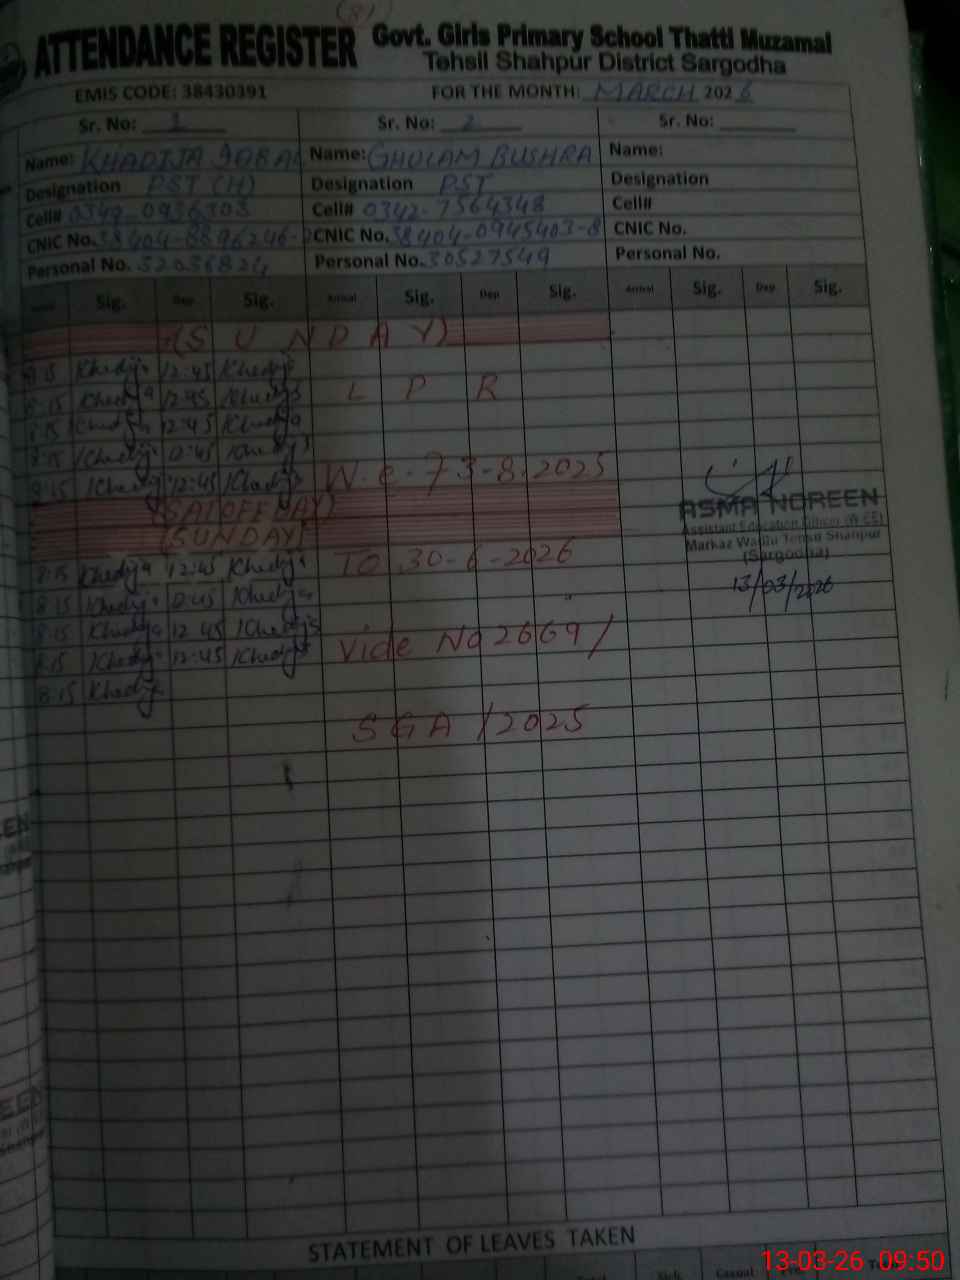 (8)
ATTENDANCE REGISTER Govt. Girls Primary School Thatti Muzamal
Tehsil Shahpur District Sargodha
EMIS CODE: 38430391 FOR THE MONTH: MARCH 2026
Sr. No: 1 Sr. No: 2 Sr. No:
Name: KHADIJA IQBAL Name: GHULAM BUSHRA Name:
Designation PST (H) Designation PST Designation
Cell# 0342-0936303 Cell# 0342-7564348 Cell#
CNIC No. 38404-8896246- CNIC No. 38404-0945403-8 CNIC No.
Personal No. 32036824 Personal No. 30527549 Personal No.
Sig. Dep Sig. Arrival Sig. Dep Sig. Arrival Sig. Dep Sig.
(SUNDAY)
8:15 Khadija 12:45 Khadija
8:15 Khadija 12:45 Khadija L P R
8:15 Khadija 12:45 Khadija
8:15 Khadija 12:45 Khadija
8:15 Khadija 12:45 Khadija W.e.f 3-8-2025
(SAT OFF DAY)
(SUNDAY)
8:15 Khadija 12:45 Khadija TO 30-6-2026
8:15 Khadija 12:45 Khadija
8:15 Khadija 12:45 Khadija
8:15 Khadija 12:45 Khadija Vide No 2669/
8:15 Khadija
SGA/2025
ASMA NOREEN
Assistant Education Officer (W-EE)
Markaz Tehsil Shahpur
(Sargodha)
13/03/2026
STATEMENT OF LEAVES TAKEN
Total Sick Casual
13-03-26 09:50